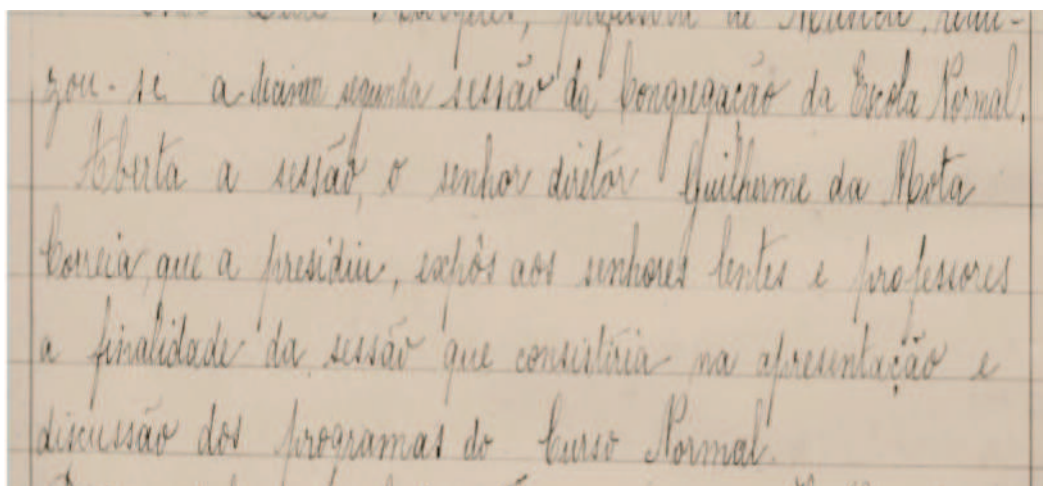 Marques, professora de Música, reali-
zou-se a décima segunda sessão da Congregação da Escola Normal.
Aberta a sessão, o senhor diretor Guilherme da Mota
Correia, que a presidiu, expôs aos senhores lentes e professores
a finalidade da sessão que consistiria na apresentação e
discussão dos programas do Curso Normal.